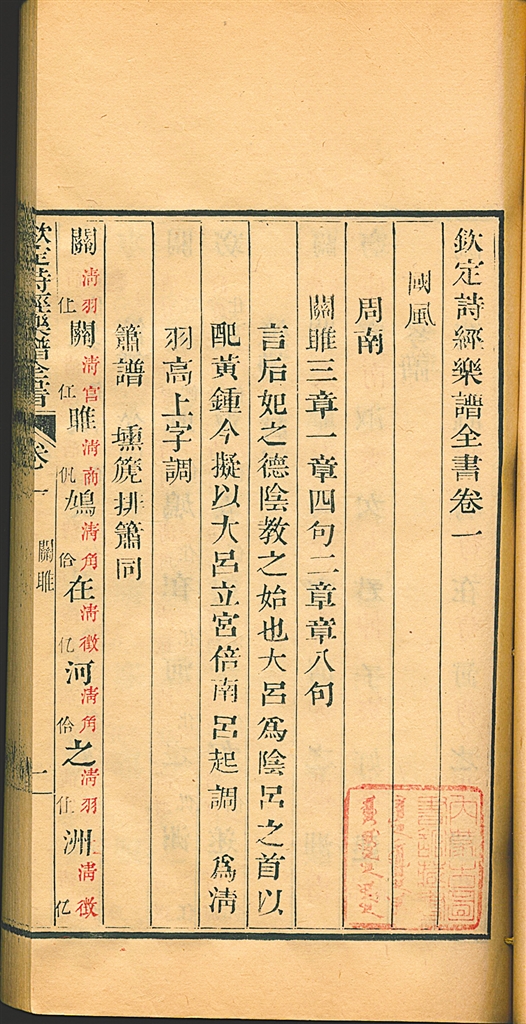 欽定詩經樂譜全書卷一
國風
周南
關雎三章一章四句二章章八句
言后妃之德陰教之始也大呂為陰呂之首以
配黃鍾今擬以大呂立宮倍南呂起調為清
羽高上字調
簫譜 壎篪排簫同
關清羽仩關清宮仜雎清商㐸鳩清角佮在清徵亿河清角佮之清羽仩洲清徵亿
欽定詩經樂譜全書 卷一 關雎 一
內蒙古圖